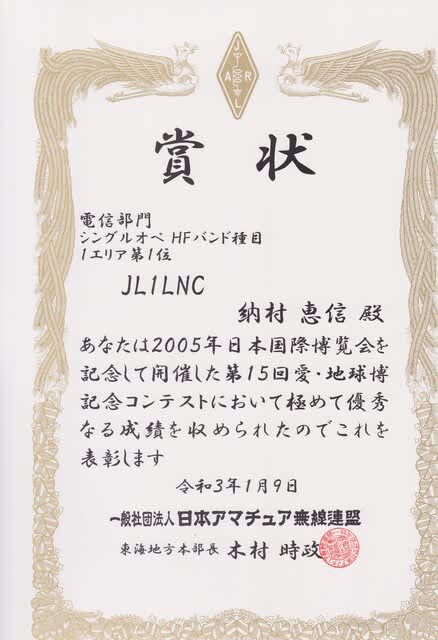 JARL
賞状
電信部門
シングルオペ HFバンド種目
1エリア第1位
JL1LNC
納村 恵信 殿
あなたは2005年日本国際博覧会を
記念して開催した第15回愛・地球博
記念コンテストにおいて極めて優秀
なる成績を収められたのでこれを
表彰します
令和3年1月9日
一般社団法人日本アマチュア無線連盟
東海地方本部長 木村 時政